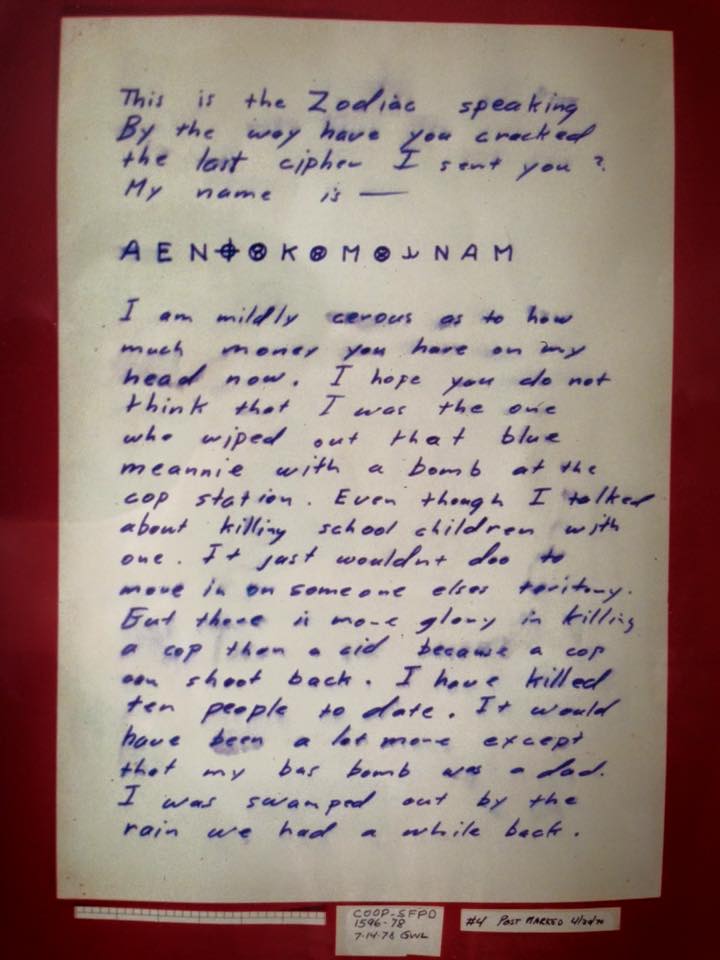 This is the Zodiac speaking
By the way have you cracked
the last cipher I sent you ?
My name is —
A E N ⌖ ⊗ K ⊗ M ⊗ N A M
I am mildly cerous as to how
much money you have on my
head now. I hope you do not
think that I was the one
who wiped out that blue
meannie with a bomb at the
cop station. Even though I talked
about killing school children with
one. It just wouldnt doo to
move in on someone elses teritory.
But there is more glory in killing
a cop than a cid because a cop
can shoot back. I have killed
ten people to date. It would
have been a lot more except
that my bus bomb was a dud.
I was swamped out by the
rain we had a while back.
COOP-SFPD
1596-78
7-14-78 GWL
#4 POST MARKED 4/20/70